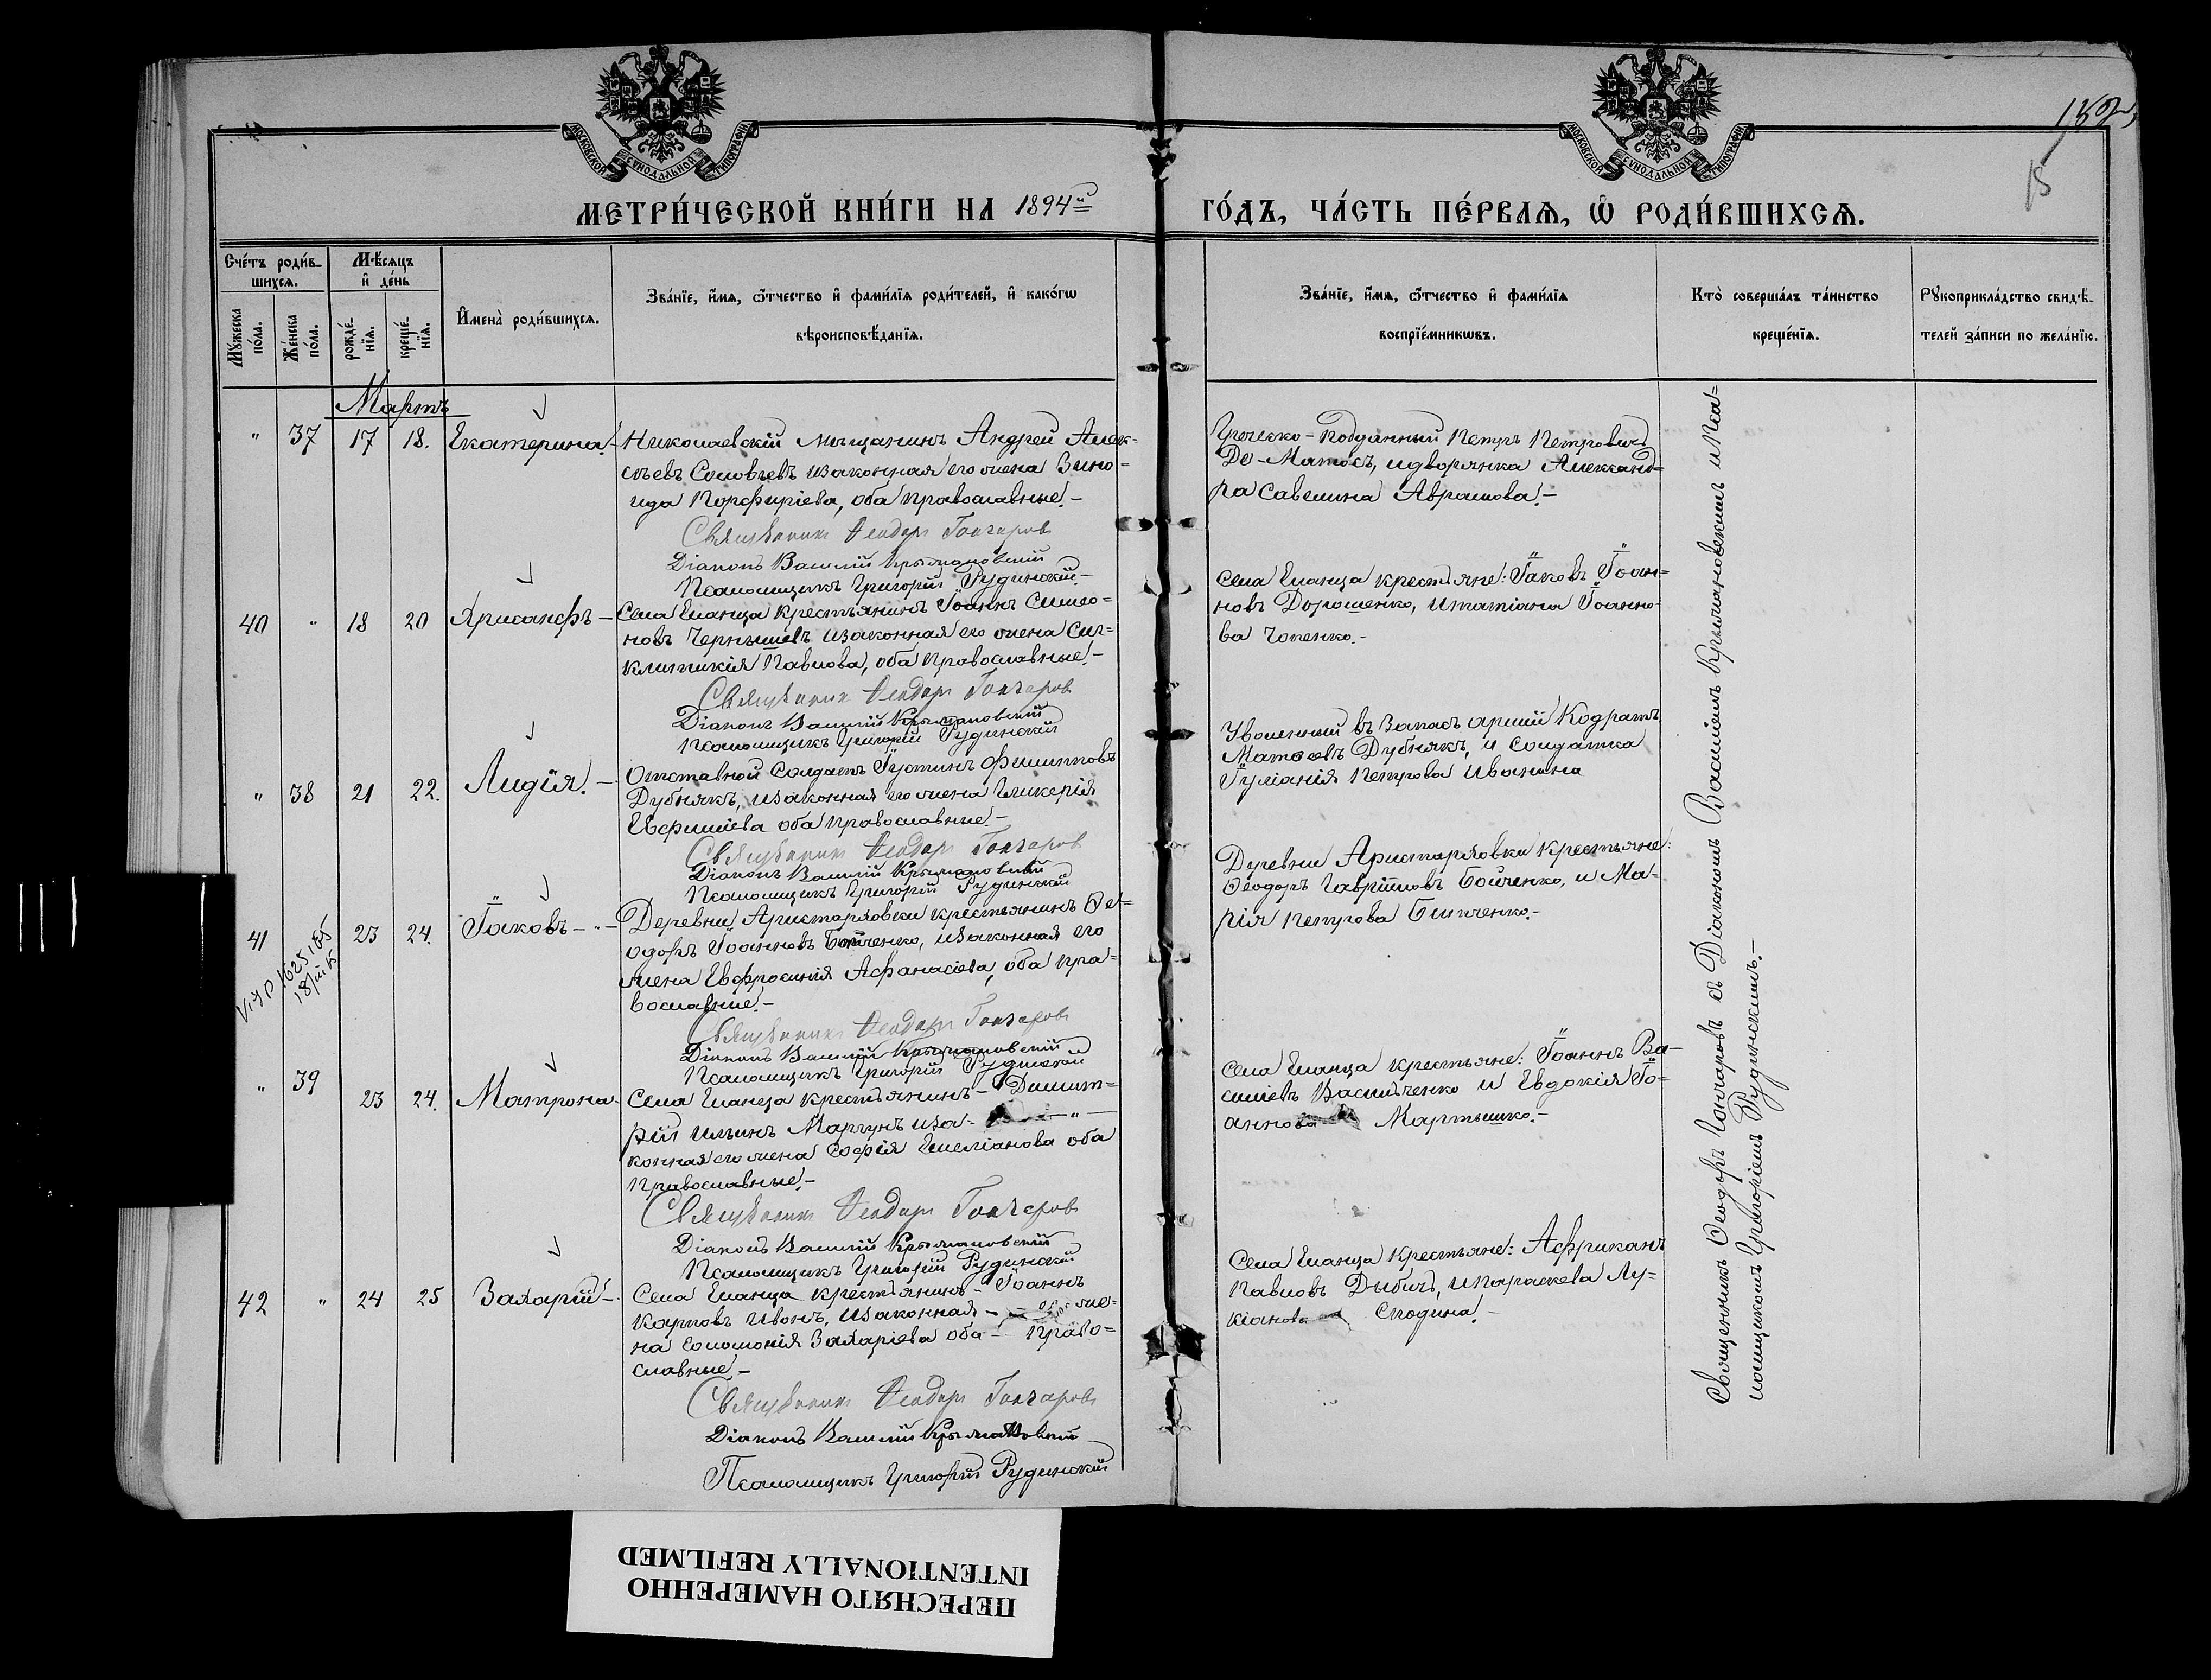 МОСКОВСКОЙ СѴНОДАЛЬНОЙ ТИПОГРАФІИ
МОСКОВСКОЙ СѴНОДАЛЬНОЙ ТИПОГРАФІИ
15
МЕТРИ́ЧЕСКОЙ КНИ́ГИ НА 1894й
ГО́ДЪ, ЧА́СТЬ ПЕ́РВАѦ, Ѡ҆ РОДИ́ВШИХСѦ.
Сче́тъ роди́в-
шихсѧ.
Мꙋ́жеска по́ла.
Же́нска по́ла.
Мѣ́сѧцъ
и҆ де́нь
рожде́-
нїѧ.
креще́-
нїѧ.
И҆мена̀ роди́вшихсѧ.
Зва́нїе, и҆́мѧ, ѻ҆́тчество и҆ фами́лїѧ роди́телей, и҆ како́гѡ
вѣроисповѣ́данїѧ.
Зва́нїе, и҆́мѧ, ѻ҆́тчество и҆ фами́лїѧ
воспрїе́мникѡвъ.
Кто̀ соверша́лъ та́инство
креще́нїѧ.
Рꙋкоприкла́дство свидѣ́-
телей за́писи по жела́нїю.
Мартъ
" 37 17 18. Екатерина.
Николаевскій мѣщанинъ Андрей Алек-
сѣевъ Соловьевъ изаконная его жена Зино-
ида Порфиріева, оба православные.-
Священник Ѳеодор Гончаров
Діаконъ Василій Крыжановскій
Псаломщикъ Григорій Рудинскій.-
Греческо-подданный Петръ Петровичъ
Де-Матосъ, идворянка Александ=
ра Савелина Аврамова.-
40 " 18 20 Хрисанфъ-
Села Еланца крестьянинъ Іоаннъ Симео-
новъ Чернышевъ изаконная его жена Син-
клитикія Павлова, оба православные.-
Священник Ѳеодор Гончаров
Діаконъ Василій Крыжановскій
Псаломщикъ Григорій Рудинскій
Села Еланца крестьяне: Іаковъ Іоан=
новъ Дорошенко, иТатіана Іоанно-
ва Чопенко.-
" 38 21 22. Лидія.-
Отставной Солдатъ Іустинъ Филипповъ
Дубнякъ, изаконная его жена Гликерія
Евфиміева оба православные.-
Священник Ѳеодор Гончаров
Діаконъ Василій Крыжановскій
Псаломщикъ Григорій Рудинскій
Уволенный въ Запасъ арміи Кодратъ
Матѳеевъ Дубнякъ, и Солдатка
Іуліанія Петрова Иванина
41 23 24. Іаковъ-"-
Деревни Аристарховки крестьянинъ Ѳе=
одоръ Іоанновъ Бойченко, изаконная его
жена Евфросинія Аѳанасіева, оба пра-
вославные.-
Священник Ѳеодор Гончаров
Діаконъ Василій Крыжановскій
Псаломщикъ Григорій Рудинскій
Деревни Аристарховки крестьяне:
Ѳеодоръ Гавріиловъ Бойченко, и Ма-
рія Петрова
" 39 23 24. Матрона-
Села Еланца крестьянинъ- Димит=
рій Ильинъ Маргунъ иза-
конная его жена Софія Емеліанова оба
православные.-
Священник Ѳеодор Гончаров
Діаконъ Василій Крыжановскій
Псаломщикъ Григорій Рудинскій
Села Еланца крестьяне: Іоаннъ Ва-
силіевъ Васильченко и Евдокія Іо=
аннова Мартышко.-
42 " 24 25 Захарій-
Села Еланца крестьянинъ- Іоаннъ
Карповъ Ивонъ, изаконная- его же-
на Соломонія Захаріева оба- право=
славные.-
Священник Ѳеодор Гончаров
Діаконъ Василій Крыжановскій
Псаломщикъ Григорій Рудинскій
Села Еланца крестьяне: Африканъ
Павловъ Дыбичъ, иПараскева Лу-
кіанова Сподина.-
Священникъ Ѳеодоръ Гончаровъ съ Діакономъ Василіемъ Крыжановскимъ иПса=
ломщикомъ Григоріемъ Рудинскимъ.-
ПЕРЕСНЯТО НАМЕРЕННО
INTENTIONALLY REFILMED